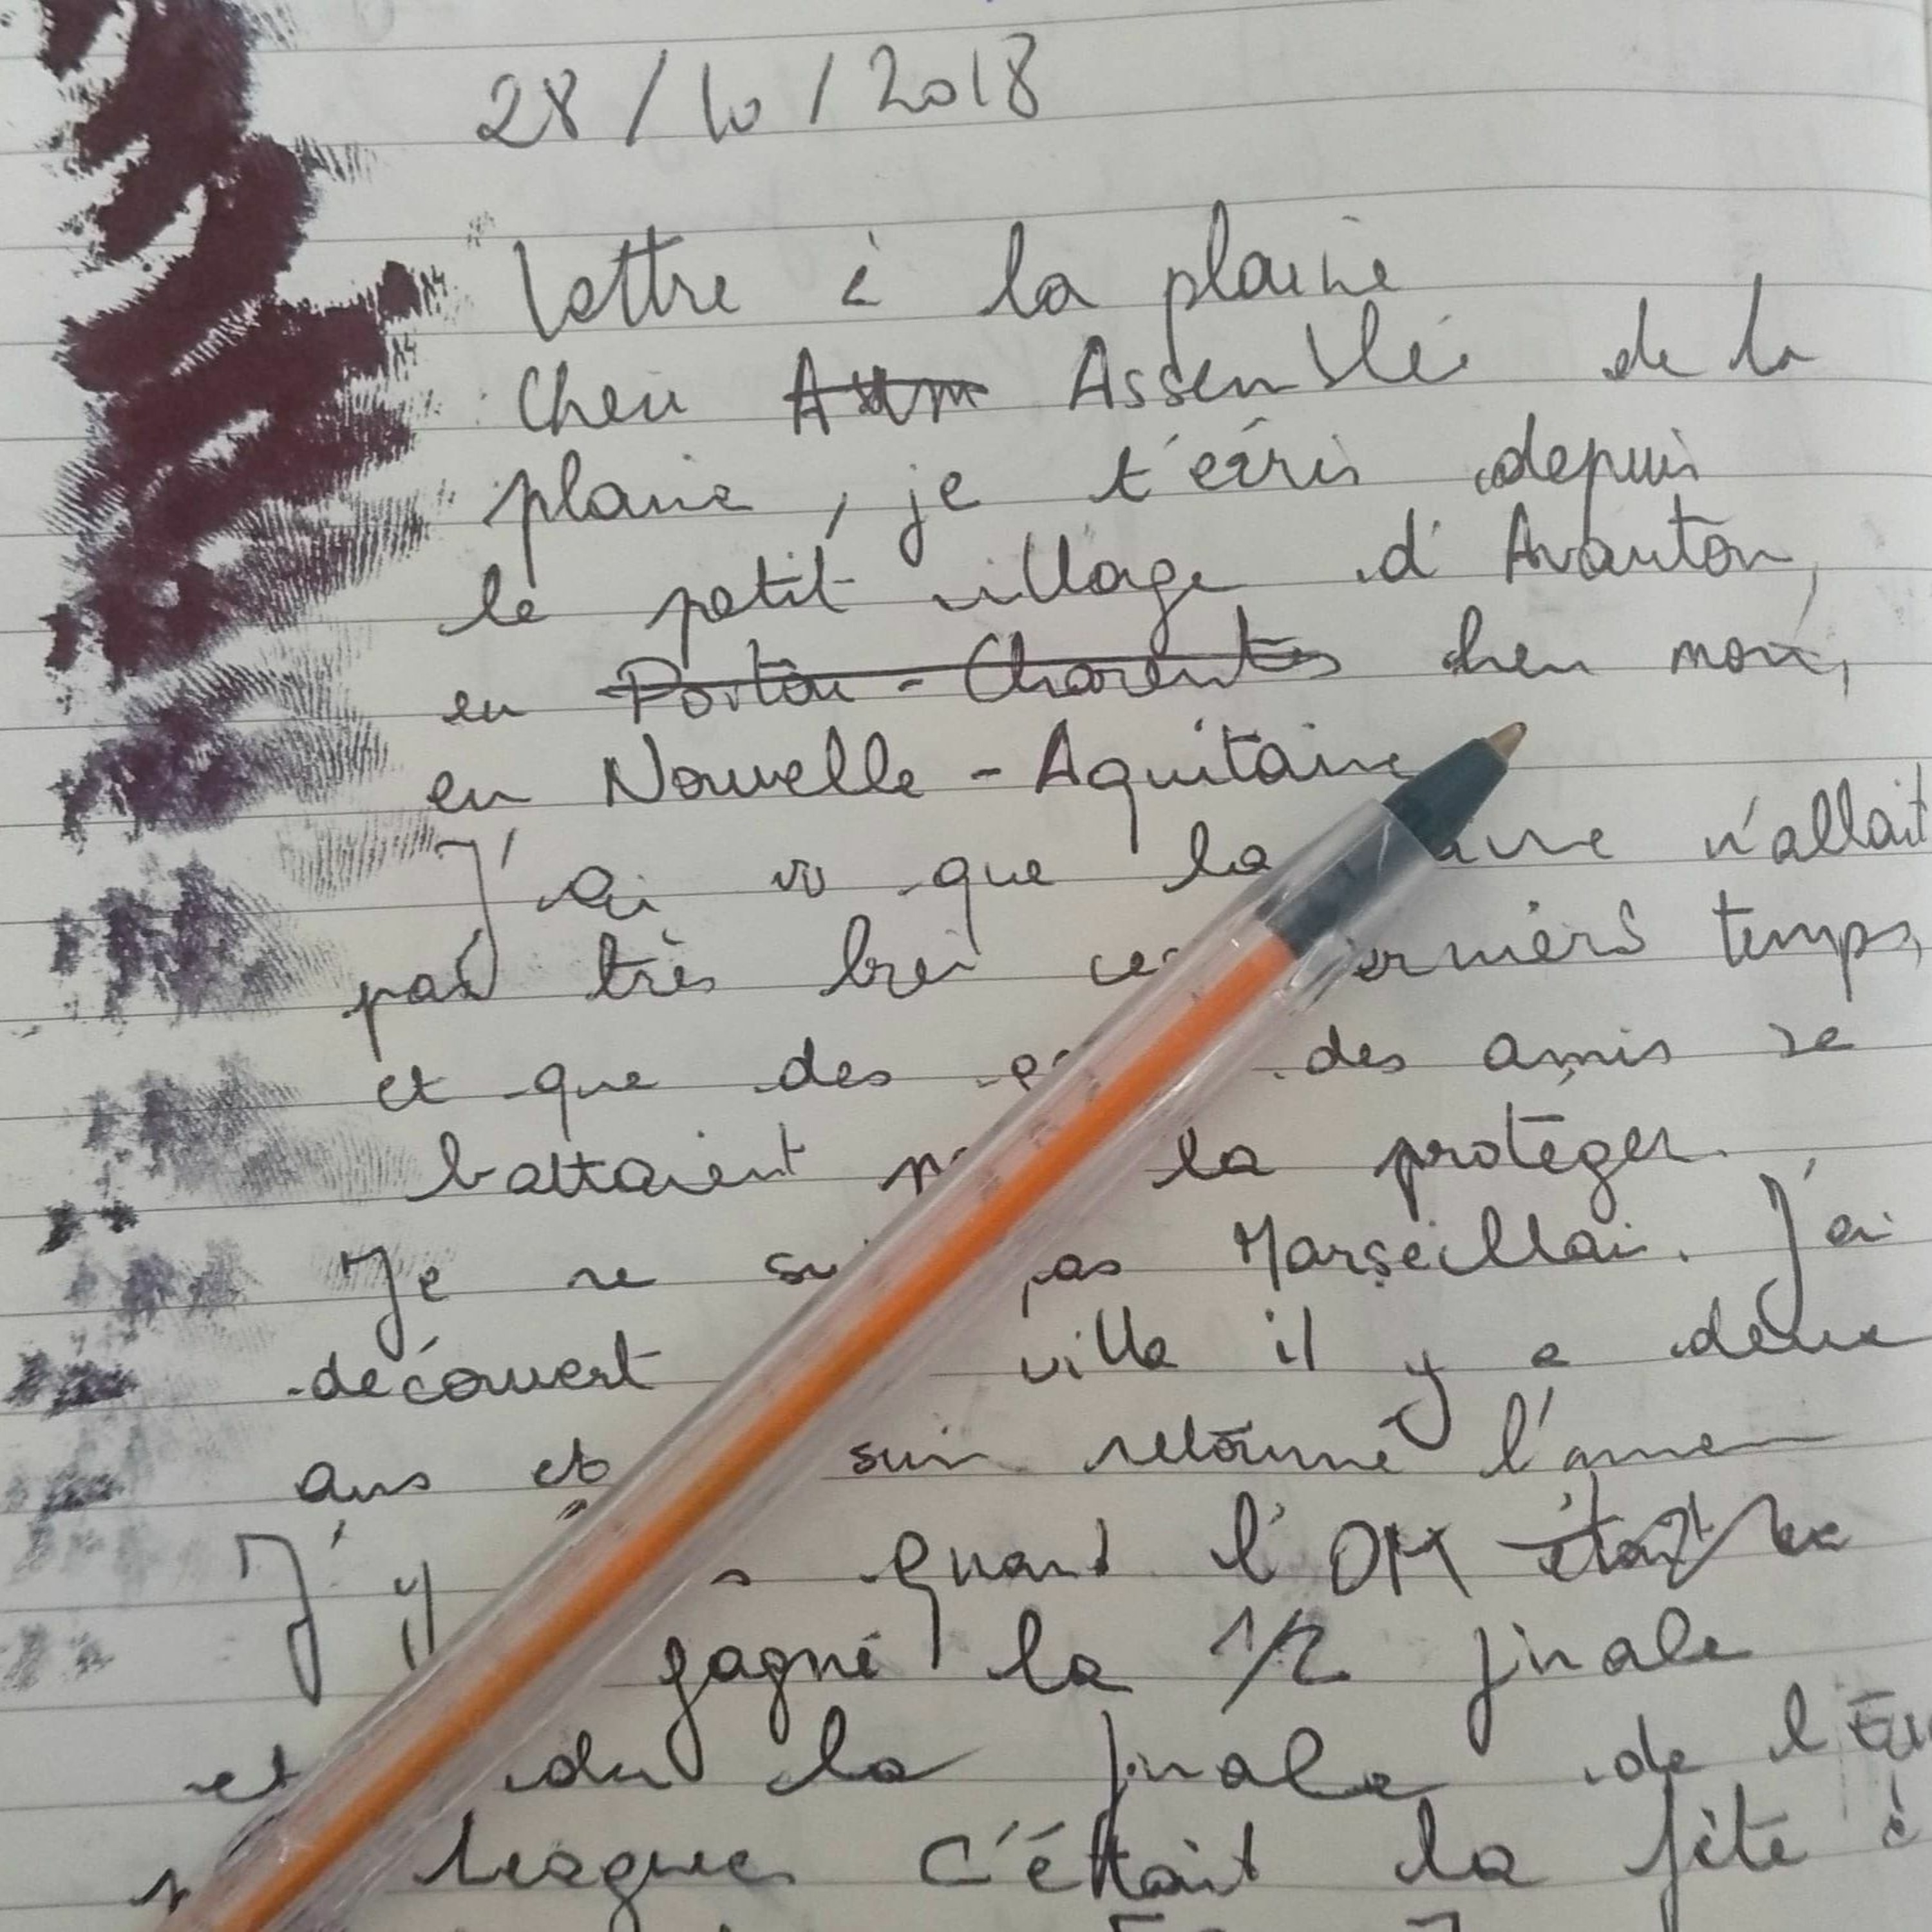 28/10/2018
Lettre à la plaine
Cher Assemblé de la
plaine, je t'écris depuis
le petit village d'Avanton,
en Poitou-Charentes heu non,
en Nouvelle-Aquitaine
J'ai vu que la n'allait
pas très bien ces derniers temps,
et que des des amis se
battaient la protéger.
Je ne suis pas Marseillais. J'ai
découvert ville il y a deux
ans et suis retourné l'année
J'y quand l'OM était
gagné la 1/2 finale
et la finale de l'
league c'était la fête à